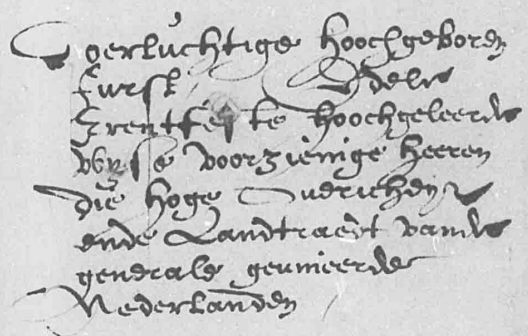 Doerluchtige Hoochgeboren
furst, Edele
Erentfeste hoochgeleerde
wyse voorzienige Heeren
die hoge Overicheyt
ende Landtraedt vande
generale geunieerde
Nederlanden